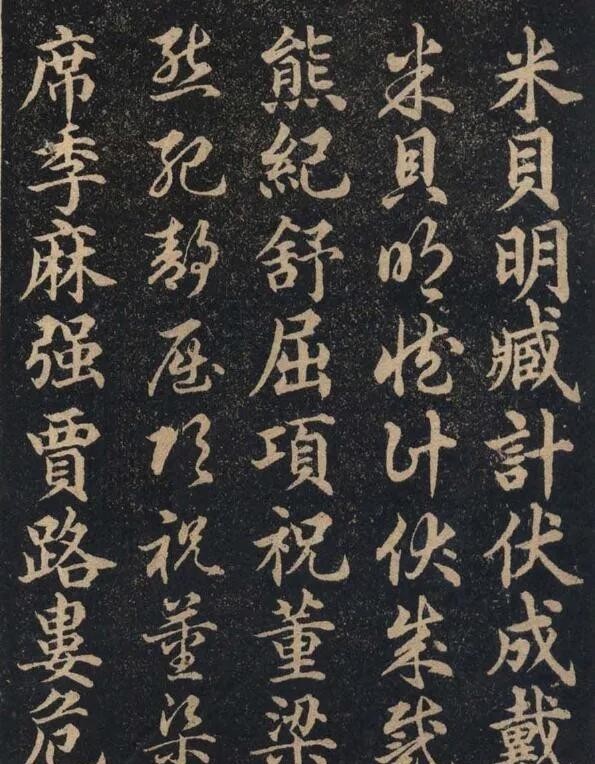 米貝明臧計伏成戴
米貝明臧計伏成戴
熊紀舒屈項祝董梁
熊紀舒屈項祝董梁
席季麻强賈路婁危